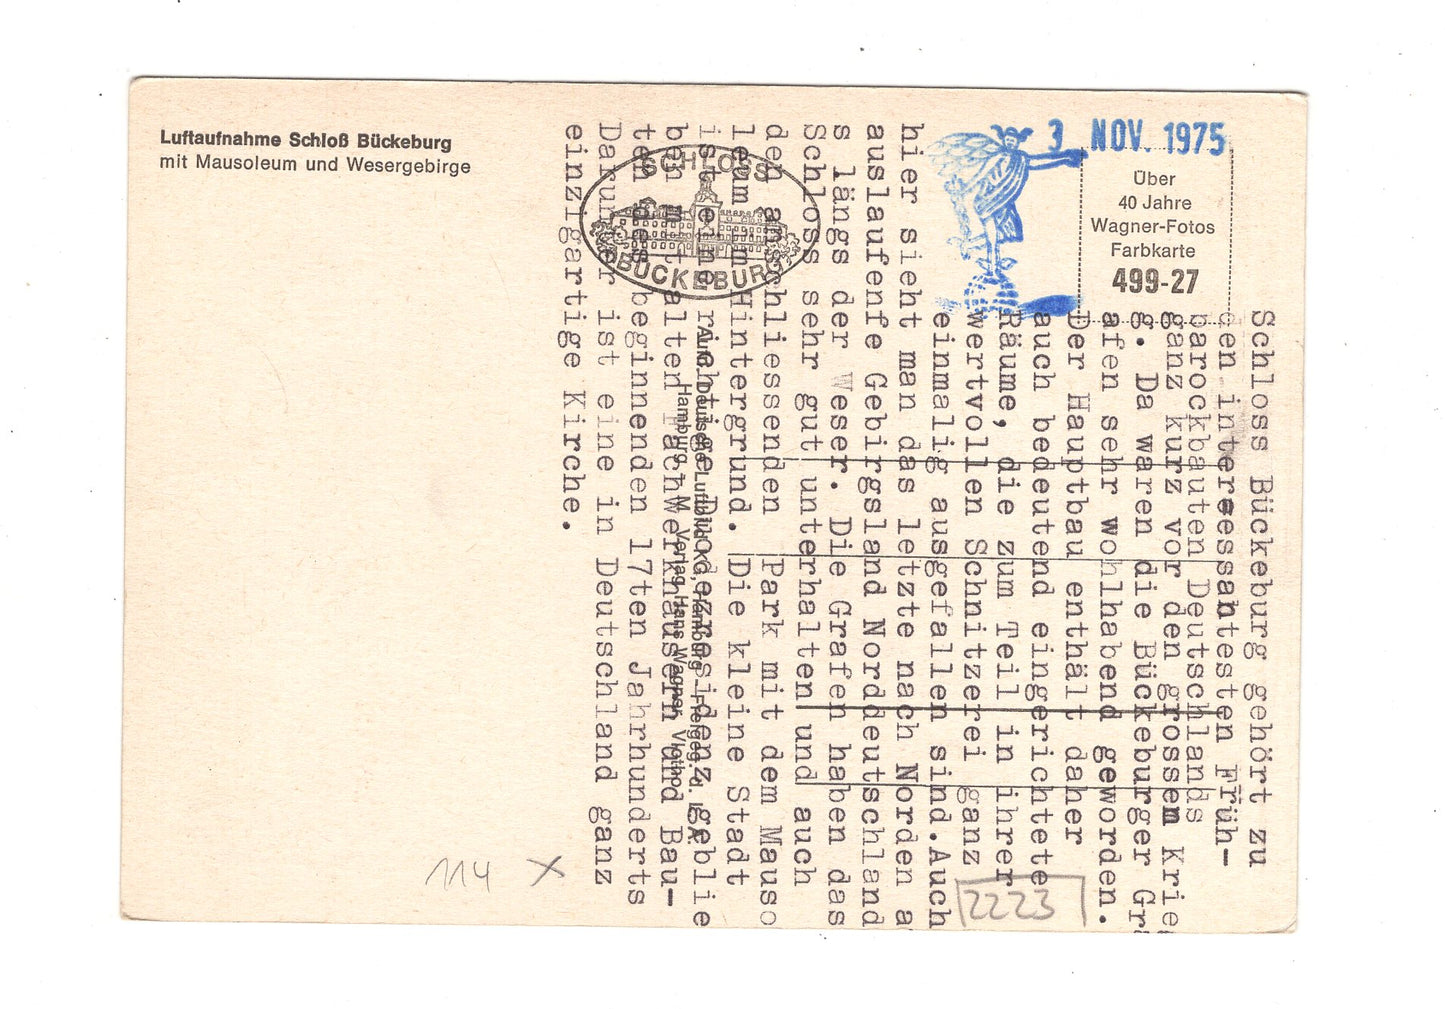 Luftaufnahme Schloß Bückeburg
mit Mausoleum und Wesergebirge
SCHLOSS
BÜCKEBURG
3 NOV. 1975
Über
40 Jahre
Wagner-Fotos
Farbkarte
499-27
Schloss Bückeburg gehört zu
den interessantesten Früh-
barockbauten Deutschlands
ganz kurz vor den grossem Krie
g. Da waren die Bückeburger Gr
afen sehr wohlhabend geworden.
Der Hauptbau enthält daher
auch bedeutend eingerichtete
Räume, die zum Teil in ihrer
wertvollen Schnitzerei ganz
einmalig ausgefallen sind.Auch
hier sieht man das letzte nach Norden a
auslaufenfe Gebirgsland Norddeutschland
s längs der Weser. Die Grafen haben das
Schloss sehr gut unterhalten und auch
den anschliessenden Park mit dem Mauso
leum im Hintergrund. Die kleine Stadt
ist eine richtige Duodezresidenz geblie
ben mit alten Fachwerkhäusern und Bau-
ten des beginnenden 17ten Jahrhunderts
Darunter ist eine in Deutschland ganz
einzigartige Kirche.
Aufn. Deutsche Luftbild KG, Hamburg - Freigeg. d. L.A.
Hamburg - M Verlag Hans Wagner, Vlotho
114 X
2223